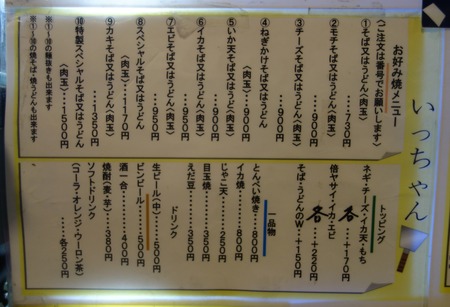 いっちゃん
お好み焼メニュー
(ご注文は番号でお願いします)
①そば又はうどん(肉玉)
・・・730円
②モチそば又はうどん(肉玉)
・・・900円
③チーズそば又はうどん(肉玉)
・・・900円
④ねぎかけそば又はうどん
(肉玉)・・・900円
⑤いか天そば又はうどん(肉玉)
・・・900円
⑥イカそば又はうどん(肉玉)
・・・950円
⑦エビそば又はうどん(肉玉)
・・・950円
⑧スペシャルそば又はうどん
(肉玉)・・・1170円
⑨カキそば又はうどん
(肉玉)・・・1350円
⑩特製スペシャルそば又はうどん
(肉玉)・・・1500円
※①~⑩の麺抜きも出来ます
※①~⑩の焼そば・焼うどんも出来ます
トッピング
ネギ・チーズ・イカ天・もち
各・・+170円
倍ヤサイ・イカ・エビ
各・・+220円
そば・うどんのW・・+150円
一品物
とんぺい焼き・・・800円
イカ焼・・・・800円
じゃこ天・・・・250円
目玉焼・・・・350円
えだ豆・・・・350円
ドリンク
生ビール(中)・・・500円
ビンビール・・・・500円
酒一合・・・・400円
焼酎(麦・芋)・・・380円
ソフトドリンク
(コーラ・オレンジ・ウーロン茶)
・・・各250円